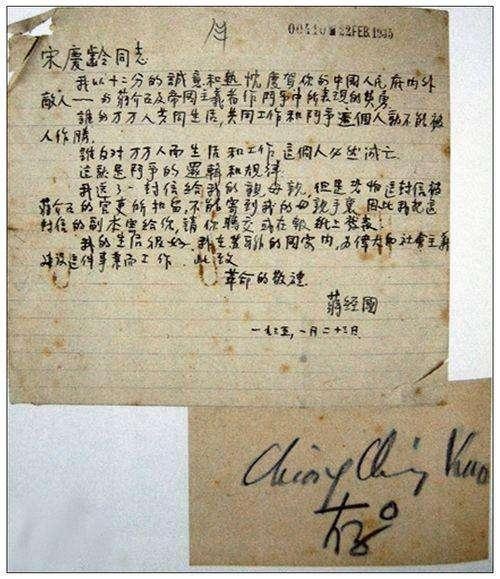 00410 22 FEB. 1935
宋慶齡同志
我以十二分的誠意和熱忱慶賀你的中國人民府内外
敵人——的蔣介石及帝國主義者作鬥爭中所表現的英勇
誰的万万人共同生活,共同工作和鬥爭這個人就不能被
人作勝.
誰反对万万人而生活和工作,這個人必然滅亡
這就是鬥爭的邏輯和規律.
我送了一封信給我的親母親,但是恐怕這封信被
蔣介石的官吏所扣留,不能寄到我的母親手裏.因此我把這
封信的副本寄給你,請你轉交或在報紙上發表.
我的生活很好,我在蘇聯的國家内,為偉大的社會主義
建設這件事業而工作.此致
革命的敬禮
蔣經國
一九三五,一月二十三日
Chiang Ching Kuo